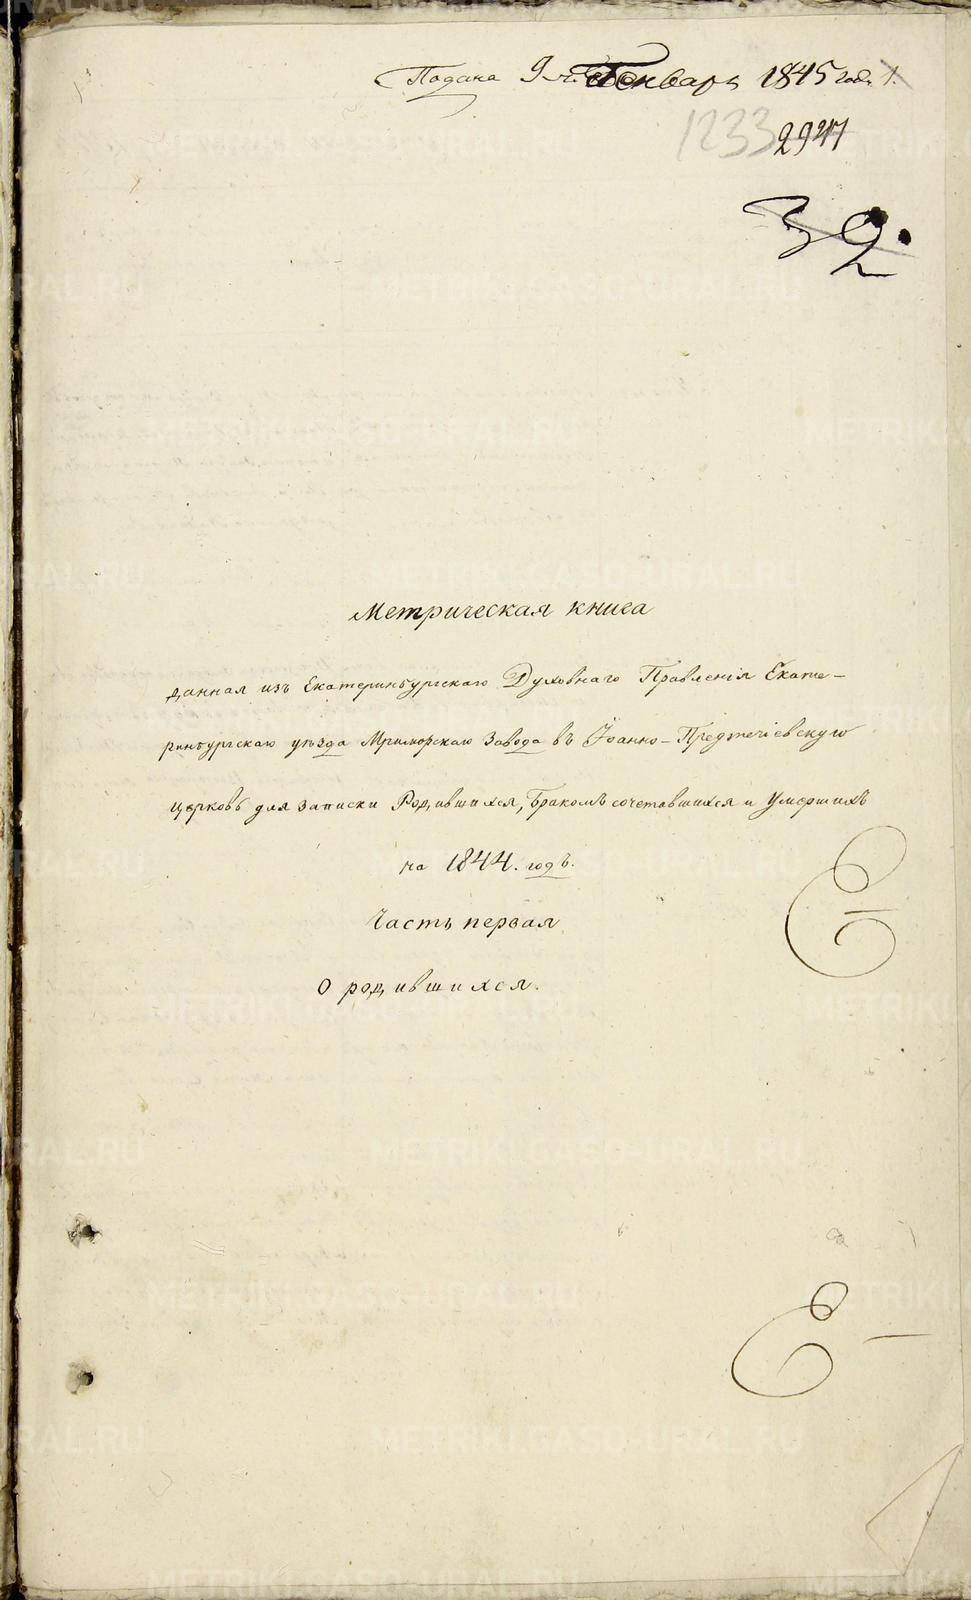 Подана 9 Генваря 1845 года 1.
1233 2947
32.
Метрическая книга
данная изъ Екатеринбургскаго Духовнаго Правленія Екате-
ринбургскаго уѣзда Мраморскаго Завода въ Іоанно-Предтечіевскую
Церковь для записки Родившихся, Бракомъ сочетавшихся и Умершихъ
на 1844. годъ.
Часть первая
О родившихся.
METRIKI.GASO-URAL.RU